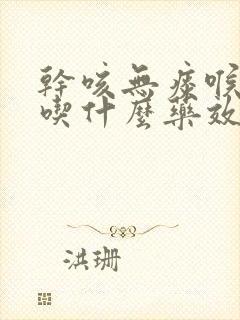 幹咳無痰喉
喫什麼藥效
洪珊